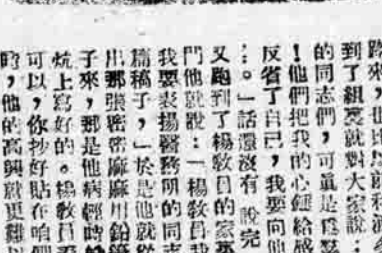 到了組裏就對大家說：
的同志們，可眞是
！他們把我的心鍵給感
反省了自己，我要向他
：。」話還沒有　說完
又跑到了楊敎員的家
門他就說：「楊敎員我
我要表揚醫務所的同志
篇稿子，」於是他就從
出那張密密麻麻用鉛筆
子來，那是他病輕時
炕上寫好的。楊敎員
可以，你抄好貼在咱們
時，他的高興就更難以